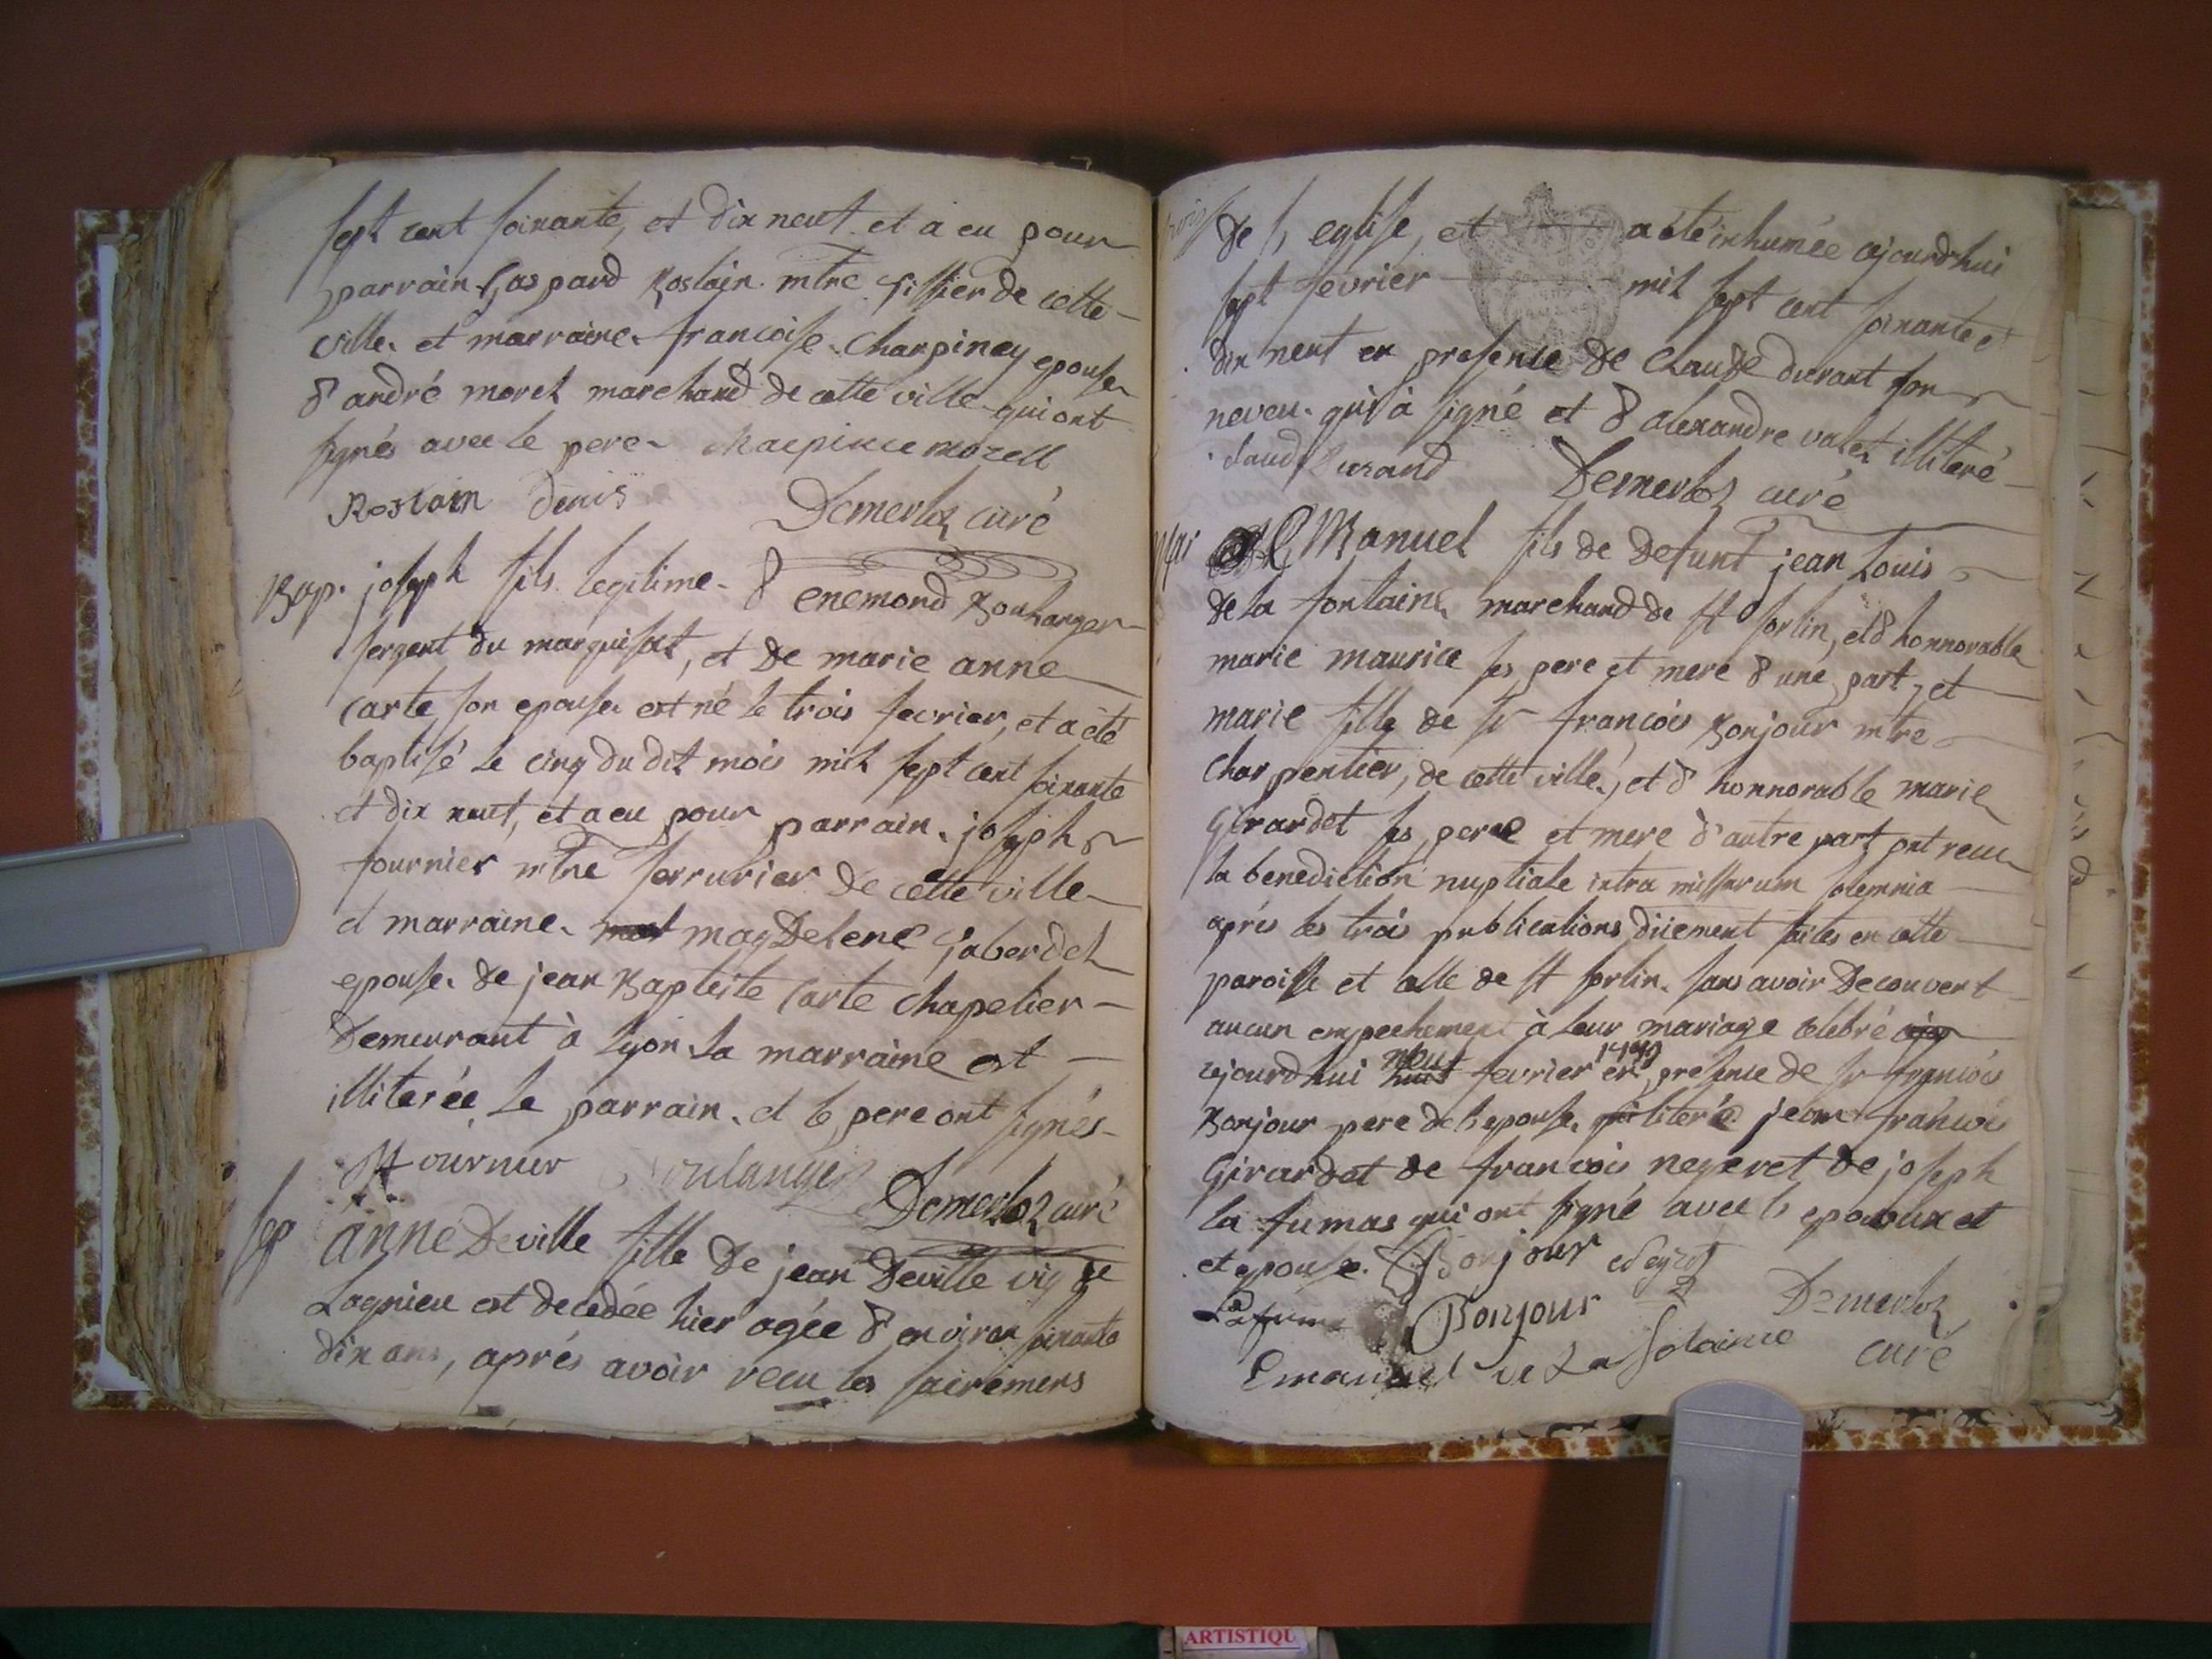 sept cent soixante, et dix neuf et a eu pour
parrain Gaspard Roslain mtre tissier de cette
ville et marraine francoise Charpiney epouse
d'andré morel marchand de cette ville qui ont
signés avec le pere Charpinee morell
Roslain denis Demerloz curé
Bap. joseph fils legitime d'enemond Boulanger
sergent du marquisat, et de marie anne
Carte son epouse est né le trois fevrier, et a été
baptisé le cinq du dit mois mil sept cent soixante
et dix neuf, et a eu pour parrain joseph
fournier mtre serrurier de cette ville
et marraine magdelene Gaberdel
epouse de jean Baptiste Carte chapelier
demeurant à Lyon la marraine est
illiterée le parrain et le pere ont signés
fournier Boulanger Demerloz curé
sep anne Deville fille de jean Deville vig de
Lagnieu est decedée hier agée d'environ soixante
dix ans, aprés avoir recu les sacremens
de l'eglise, et a été inhumée cejourd'hui
sept fevrier mil sept cent soixante et
dix neuf en presence de Claude durant son
neveu qui à signé et d'alexandre valet illiteré
Claude Durand Demerloz curé
Mari Emanuel fils de defunt jean Louis
de la fontaine marchand de st sorlin, et d'honnorable
marie maurice ses pere et mere d'une part, et
marie fille de sr francois Bonjour mtre
charpentier, de cette ville, et d'honnorable marie
Girardet ses pere et mere d'autre part ont recu
la benediction nuptiale intra missarum solemnia
aprés les trois publications düement faites en cette
paroisse et celle de st sorlin sans avoir decouvert
aucun empechement à leur mariage celebré
cejourd'hui neuf huit fevrier 1779 en presence de sr francois
Bonjour pere de l'epouse illiteré jean francois
Girardet de francois negeret de joseph
la fumas qui ont signé avec les epoux et
et epouse. Bonjour
Lafuma Bonjour Demerloz
Emanuel de La fotaine curé
ARTISTIQU